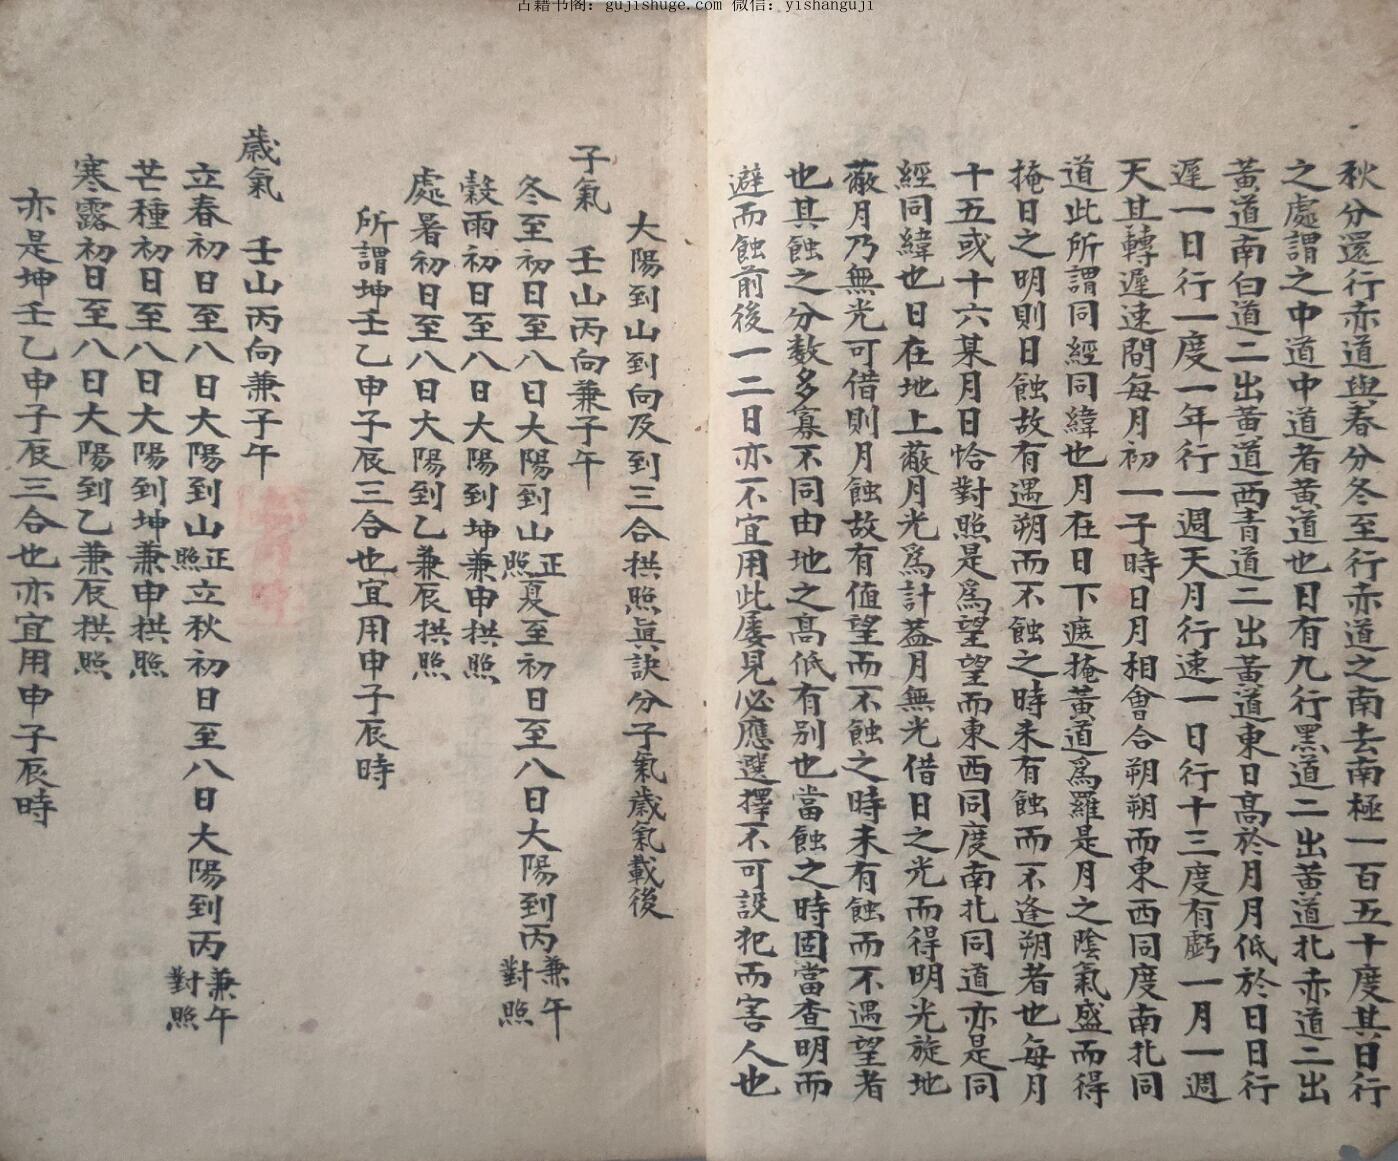 古籍书阁：gujishuge.com 微信：yishanguji
秋分還行赤道與春分冬至行赤道之南去南極一百五十度其日行
之處謂之中道中道者黃道也日有九行黑道二出黃道北赤道二出
黃道南白道二出黃道西青道二出黃道東日高於月月低於日日行
遲一日行一度一年行一週天月行速一日行十三度有虧一月一週
天其轉遲速間每月初一子時日月相會合朔朔而東西同度南北同
道此所謂同經同緯也月在日下遮掩黃道爲羅是月之陰氣盛而得
掩日之明則日蝕故有遇朔而不蝕之時未有蝕而不逢朔者也每月
十五或十六某月日恰對照是爲望望而東西同度南北同道亦是同
經同緯也日在地上蔽月光爲計蓋月無光借日之光而得明光旋地
蔽月乃無光可借則月蝕故有值望而不蝕之時未有蝕而不遇望者
也其蝕之分數多寡不同由地之高低有別也當蝕之時固當查明而
避而蝕前後一二日亦不宜用此屢見必應選擇不可設犯而害人也
大陽到山到向及到三合拱照眞訣分子氣歲氣載後
子氣 壬山丙向兼子午
冬至初日至八日大陽到山正照夏至初日至八日大陽到丙兼午對照
穀雨初日至八日大陽到坤兼申拱照
處暑初日至八日大陽到乙兼辰拱照
所謂坤壬乙申子辰三合也宜用申子辰時
歲氣 壬山丙向兼子午
立春初日至八日大陽到山正照立秋初日至八日大陽到丙兼午對照
芒種初日至八日大陽到坤兼申拱照
寒露初日至八日大陽到乙兼辰拱照
亦是坤壬乙申子辰三合也亦宜用申子辰時